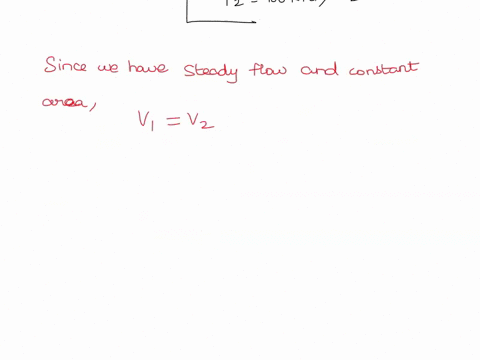 Since we have steady flow and constant
area,
V1 = V2